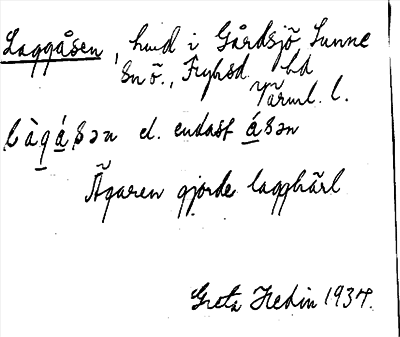 Laggåsen, hmd i Gårdsjö, Sunne
sn ö., Fryksd. hd
Värml. l.
làgásən el. endast ásən
Ägaren gjorde laggkärl
Greta Hedin 1934.